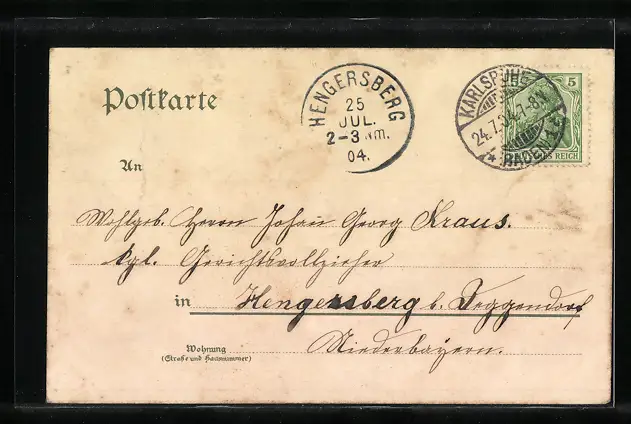 Postkarte
HENGERSBERG
25
JUL.
2-3 Nm.
04.
KARLSRUHE
24.7.04.7-8N.
* (BADEN) 1 *
5
REICH
An
Wohlgeb. Herrn Johann Georg Kraus.
kgl. Gerichtsvollzieher
in Hengersberg b. Deggendorf
Niederbayern.
Wohnung
(Straße und Hausnummer)